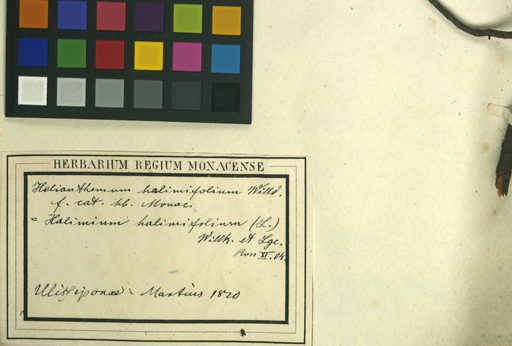 HERBARIUM REGIUM MONACENSE
Helianthemum halimifolium Willd.
f. cat. hb. Monac.
= Halimium halimifolium (L.)
Willk. et Lge.
Ulissiponae: Martius 1820